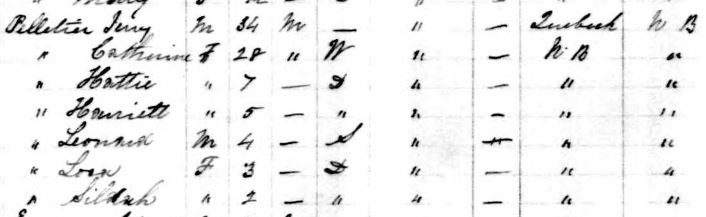 Pelletier Jerry M 34 M — " — Quebeck N B
" Catherine F 28 " W " — N B "
" Hattie " 7 — D " — " "
" Harriett " 5 — " " — " "
" Leonard M 4 — S " — " "
" Loon F 3 — D " — " "
" " 2 — " " — " "